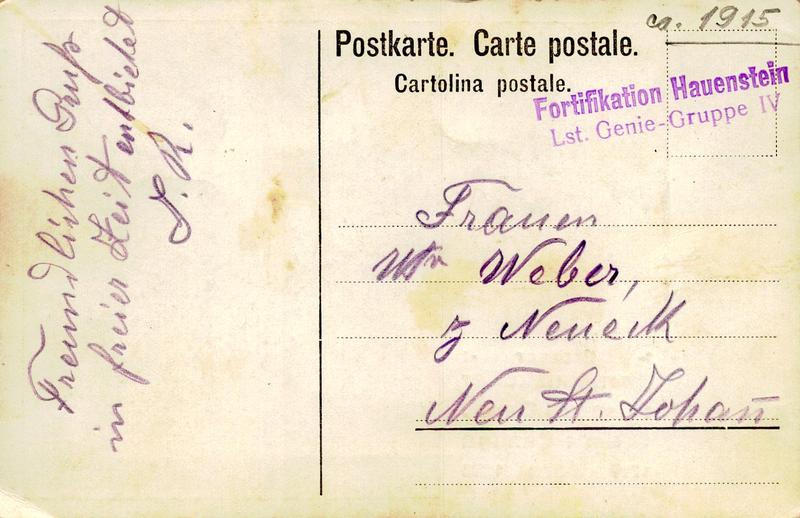 n. 1915
Postkarte. Carte postale.
Cartolina postale.
Fortifikation Hauenstein
Lst. Genie-Gruppe IV
Freundlichen Gruß
in freier Zeit entbietet
J. R.
Frauen
Weber,
z Neueck
Neu St. Johann